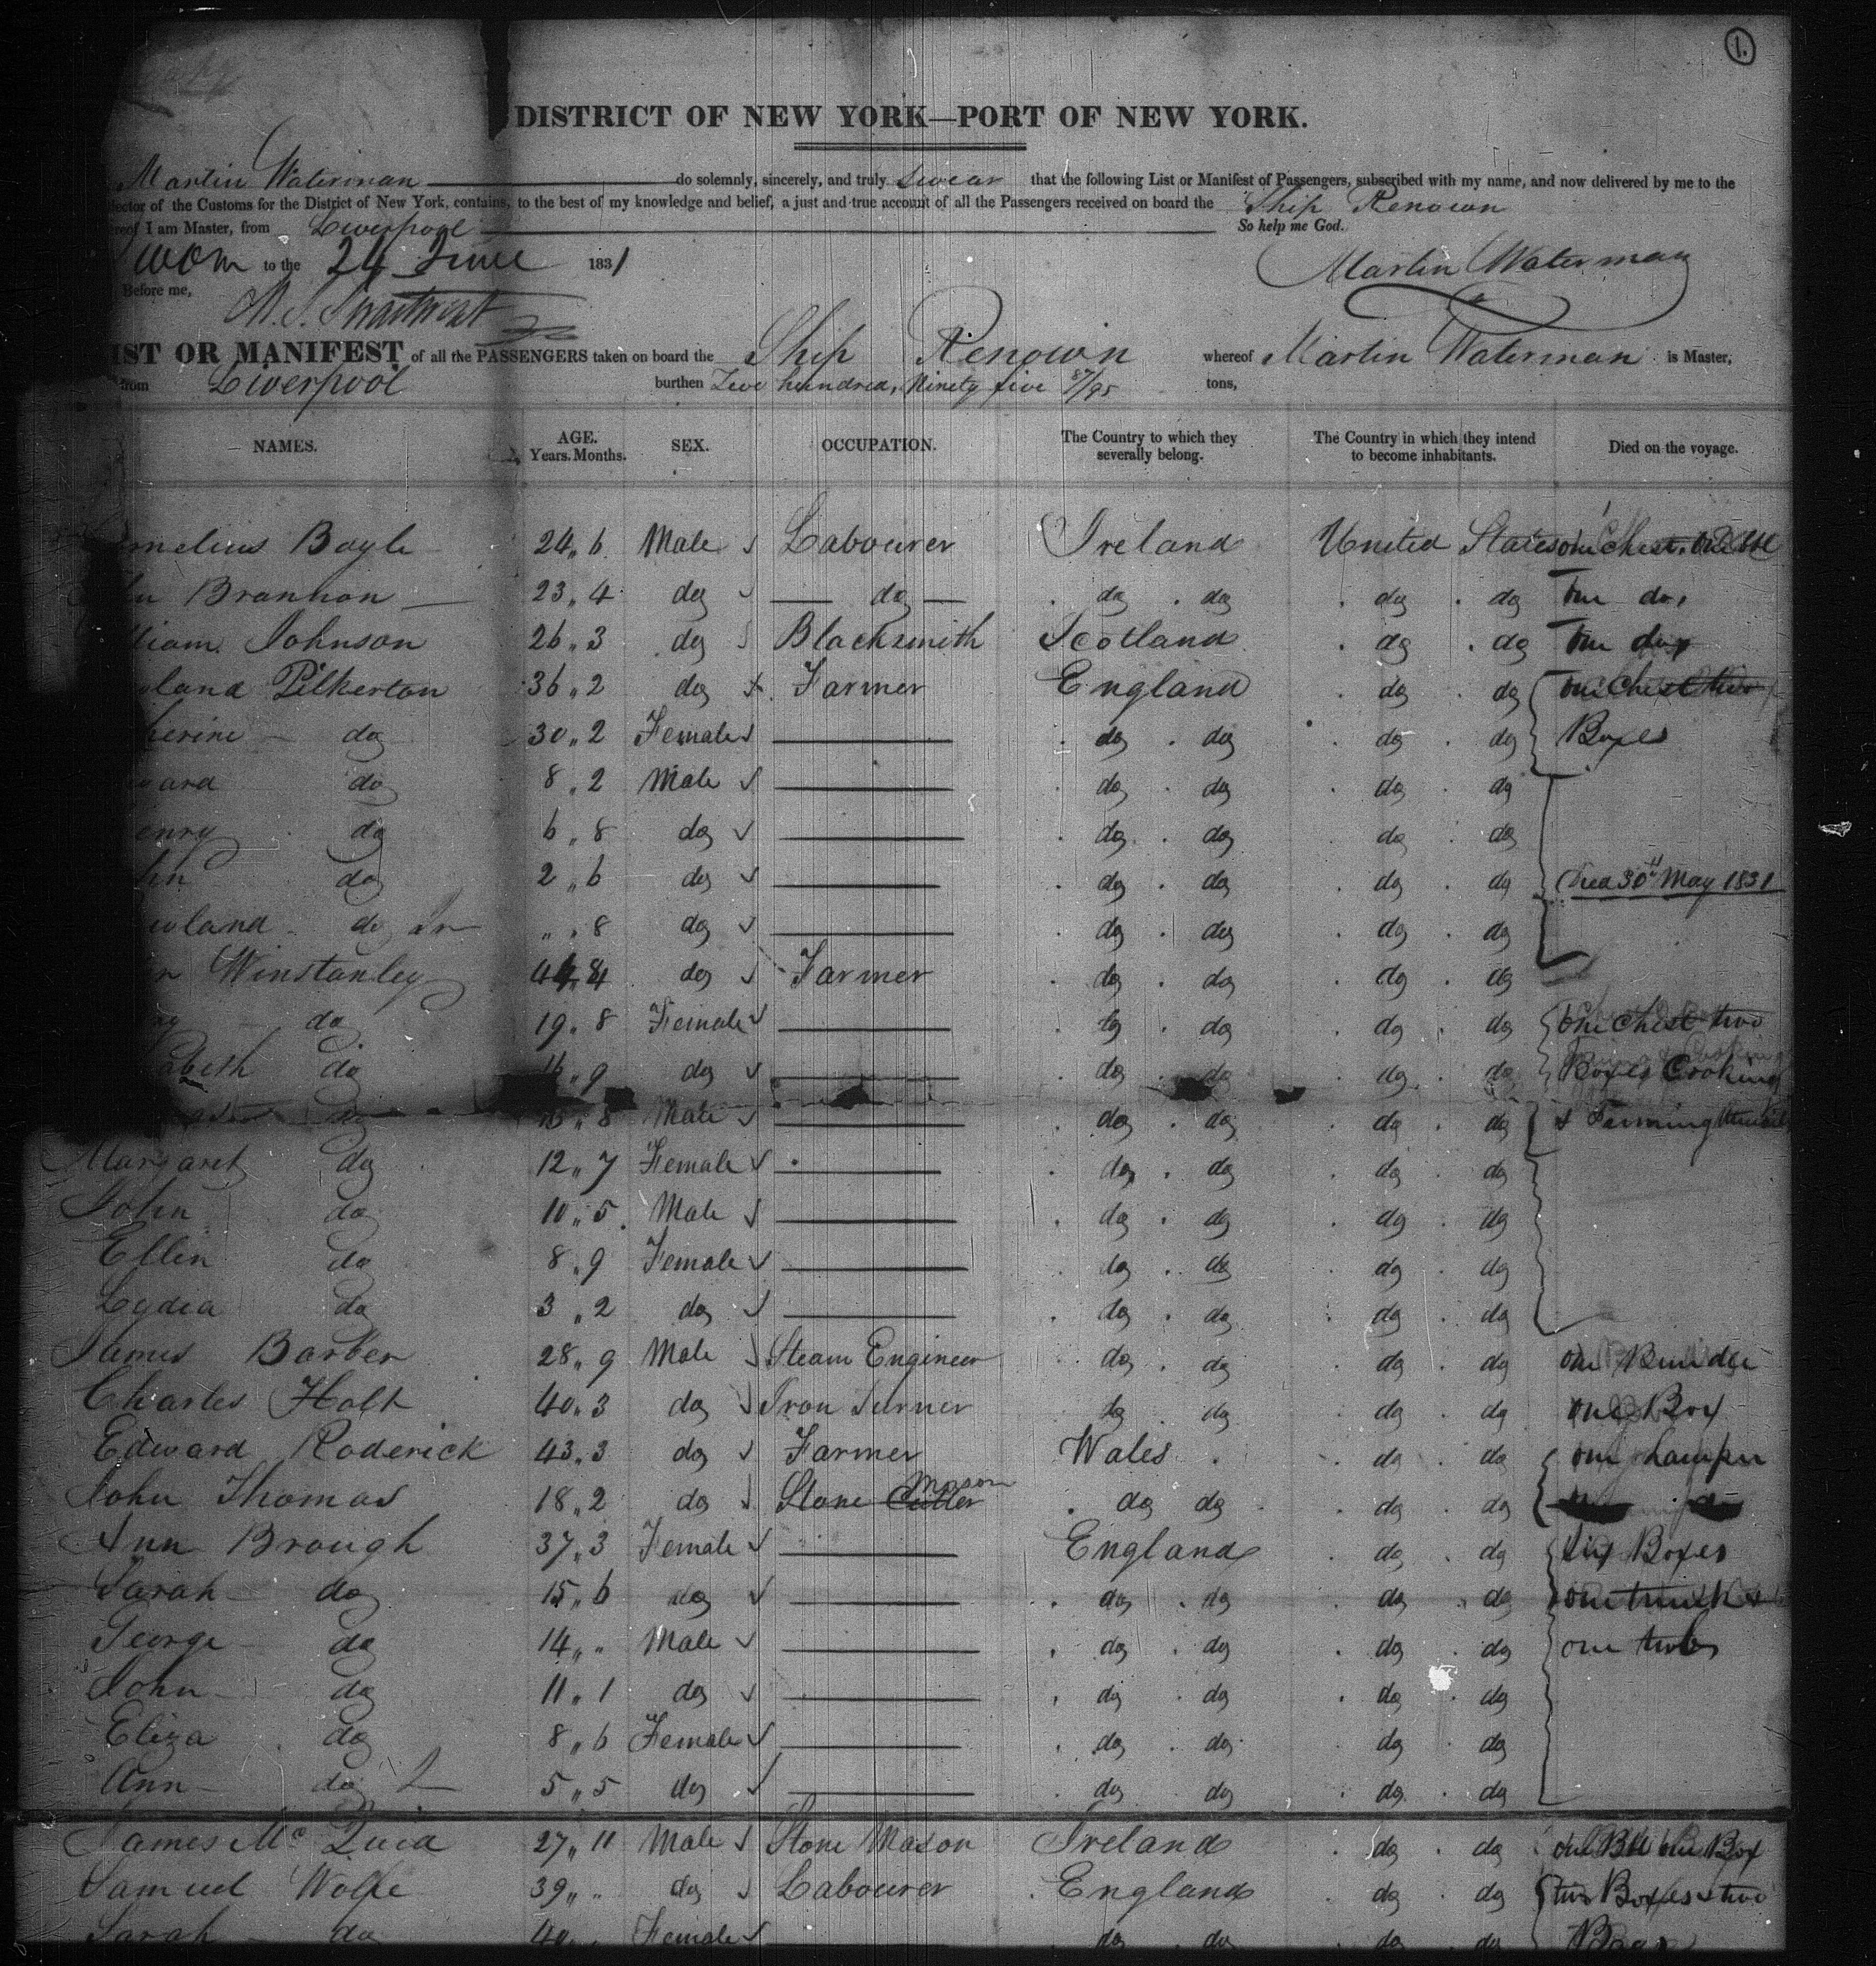 1.
DISTRICT OF NEW YORK—PORT OF NEW YORK.
Martin Waterman do solemnly, sincerely, and truly Swear that the following List or Manifest of Passengers, subscribed with my name, and now delivered by me to the
lector of the Customs for the District of New York, contains, to the best of my knowledge and belief, a just and true account of all the Passengers received on board the Ship Renown
ereof I am Master, from Liverpool So help me God.
worn to the 24 June 1831 Martin Waterman
Before me,
IST OR MANIFEST of all the PASSENGERS taken on board the Ship Renown whereof Martin Waterman is Master,
from Liverpool burthen Two hundred, Ninety five 87/95 tons,
NAMES. AGE. Years. Months. SEX. OCCUPATION. The Country to which they severally belong. The Country in which they intend to become inhabitants. Died on the voyage.
rnelius Boyle 24 " 6 Male Labourer Ireland United States one Chest
Brannon 23 " 4 do do do do do do one do
liam Johnson 26 " 3 do Blacksmith Scotland do do one do
land Pilkerton 36 " 2 do Farmer England do do one Chest two
herine do 30 " 2 Female do do do do Boxes
ward do 8 " 2 Male do do do do
enry do 6 " 8 do do do do do
hn do 2 " 6 do do do do do Died 30th May 1831
wland do Jr " " 8 do do do do do
Winstanley 44 " 4 do Farmer do do do do
do 19 " 8 Female do do do do One Chest two
abeth do 16 " 9 do do do do do Boxes Cooking
do 15 " 8 Male do do do do & Farming Utensils
Margaret do 12 " 7 Female do do do do
John do 10 " 5 Male do do do do
Ellin do 8 " 9 Female do do do do
Lydia do 3 " 2 do do do do do
James Barber 28 " 9 Male Steam Engineer do do do do one Bundle
Charles Holt 40 " 3 do Iron Turner do do do do one Box
Edward Roderick 43 " 3 do Farmer Wales do do one hamper
John Thomas 18 " 2 do Stone Cutter Mason do do do do
Ann Brough 37 " 3 Female England do do six Boxes
Sarah do 15 " 6 do do do do do one trunk &
George do 14 " " Male do do do do one tub
John do 11 " 1 do do do do do
Eliza do 8 " 6 Female do do do do
Ann do 2 5 " 5 do do do do do
James Mc Quid 27 " 11 Male Stone Mason Ireland do do one Bdl one Box
Samuel Wolfe 39 " " do Labourer England do do two Boxes & two
Sarah do 40 " " Female do do do do Bags